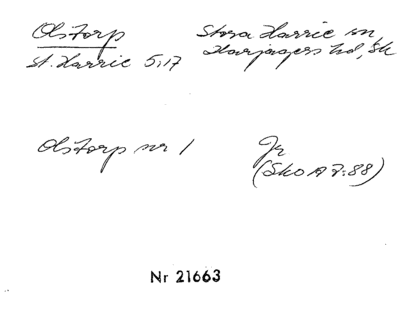 Olstorp Stora Harrie sn,
St. Harrie 5,17 Harjagers hd, Sk
Olstorp nr 1 Jr
(Sko A 7:88)
Nr 21663